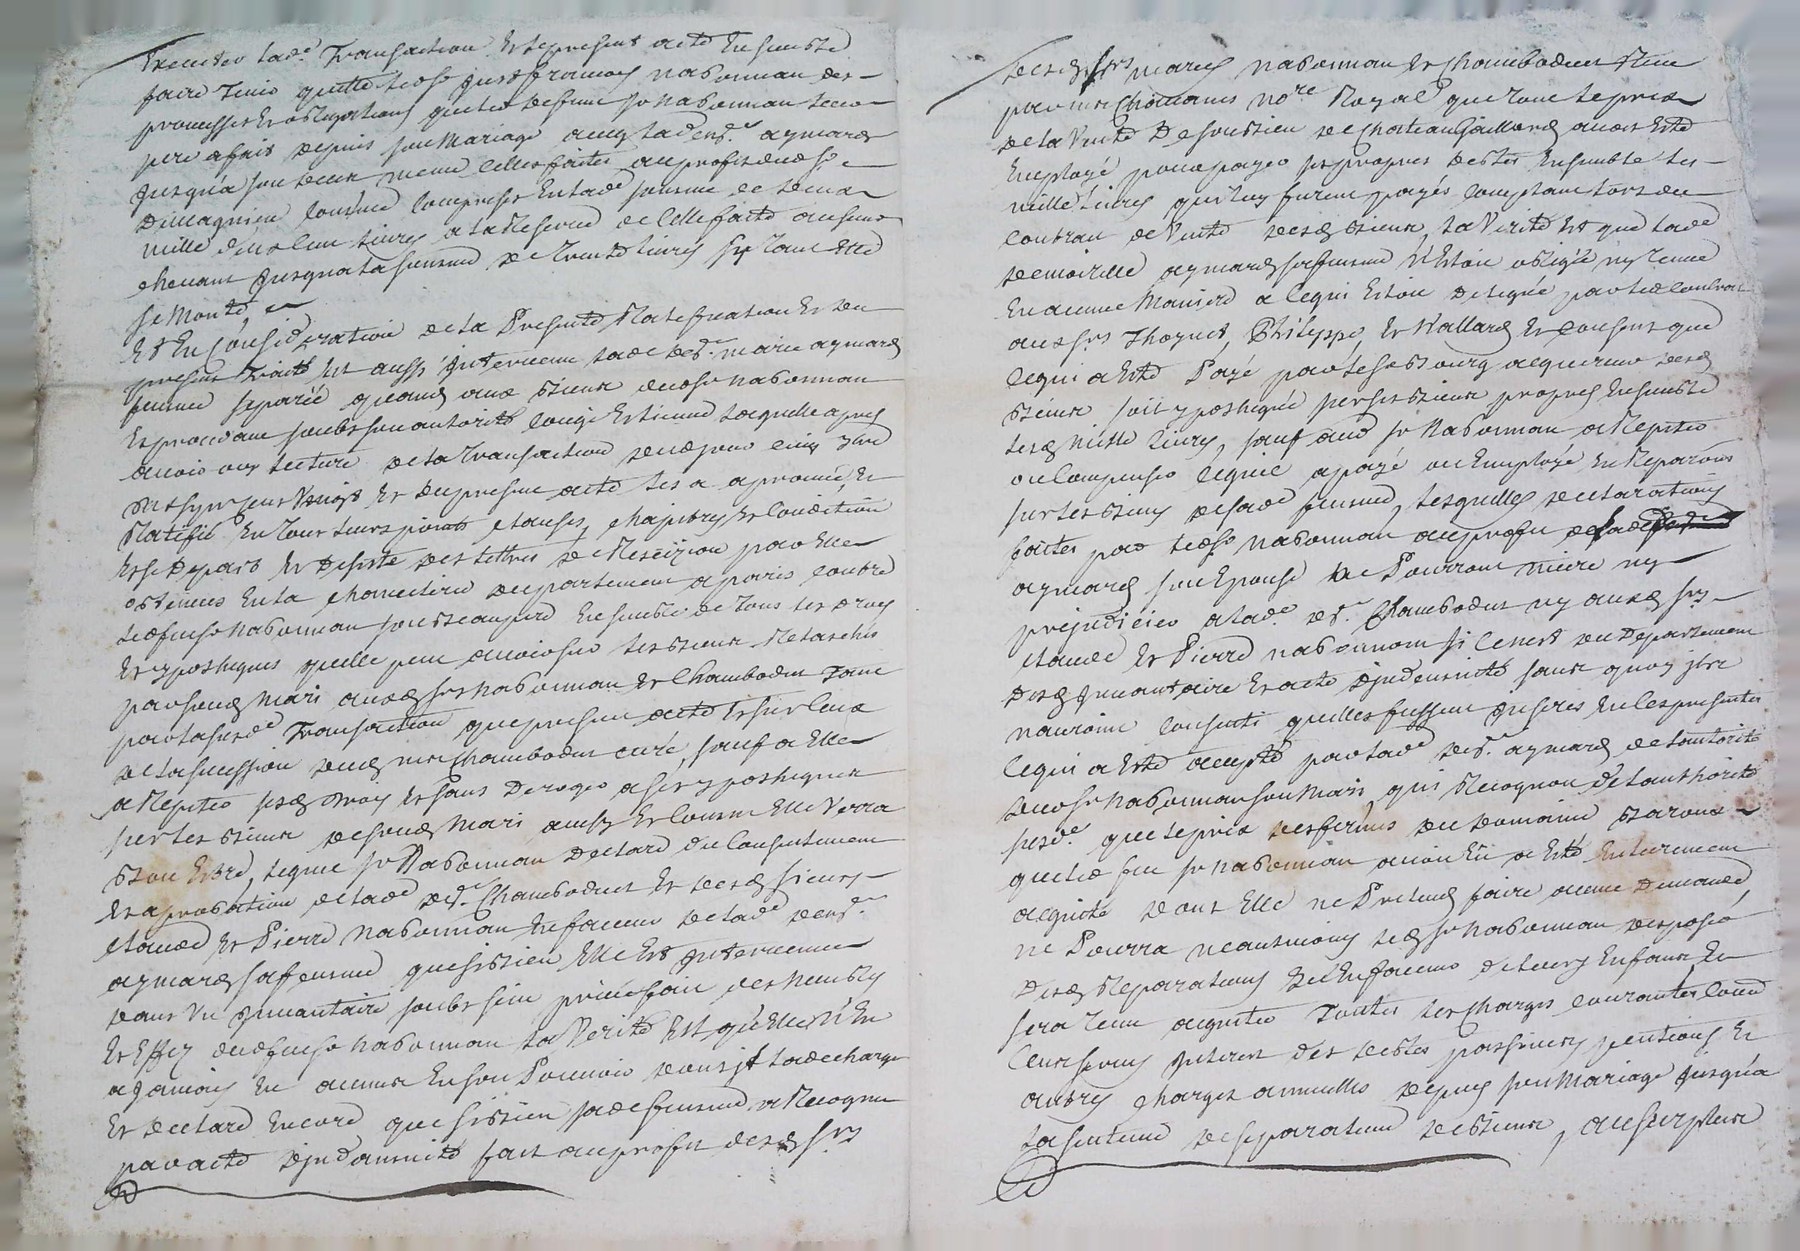 Executer lade. Transaction et le present acte Ensemble
faire tenir quitte ledsr. Jean francois nabonnan des
promesses et obligations que led defunt sr nabonnan leur
pere a fait depuis son mariage avec lade dlle. aymard
jusqua son deces meme celles faites au profit dud sr.
comprises en lade somme de deux
mille deux cent livres a la reserve de celle faite au sieur
chenant jusqua la somme de trente livres sy tant elle
se monte
Et En Consideration de la Presente Ratiffication et du
present traité est aussi intervenue lade dlle. marie aymard
femme separée quand aux biens dudsr nabonnan
et procedant soubs son autorité congé et licence laquelle apres
avoir ouy lecture de la transaction dudjour cinq
et du present acte les a aprouvé et
Ratifié En tout leurs points clauses, chapitres et condition
et se depart et desiste des lettres de Rescizion par Elle
obtenues En la chancelerie du parlement a paris contre
ledfeusr nabonnan son beaupere Ensemble de tous les droits
et ypotheques quelle peut avoir sur les biens Relachés
par sond mari auxd srs nabonnan et Chambodut tant
par lasusde transaction que present acte et sur ceux
de la succession dud mre Chambodut curé, sauf a Elle
a Repeter sesd droits et sans deroger a ses ypotheques
sur les biens de sond mari ainsy et comme Elle verra
bon Estre, lequel sr Nabonnan declare du consentement
et aprobation de lade dlle. Chambodut et desd sieurs
claude et Pierre nabonnan En faveur de lade dlle.
aymard sa femme que si bien Elle est intervenue
dans un inventaire soubs sein privé fait des meubles
et Effets dudfeusr nabonnan la verité Est qu'Elle n'en
a jamais eu aucuns En son Pouvoir dont il la decharge
et declare Encore que si bien sade femme a Recognu
par acte d'indamnité fait au profit desd srs
desd srs mariés nabonnan et Chambodut
par mre Chomans nore Royal que tout le prix
de la vente de son bien de Chateau Gaillard avoit Esté
Employé pour payer ses propres debtes Ensemble les
mille livres qui luy furent payés comptant lors du
contrat de vente desd biens, la verité est que lade
demoiselle aymard sa femme n'estoit obligée ny tenue
En aucune maniere a ce qui Estoit delegué par led contrat
aux srs Thoynet, Philippe, et Wallard et consent que
ce qui a Esté Payé par lesr Bourg acquereur desd
biens soit ypothequé sur ses biens propres Ensemble
lesd mille livres, sauf aud sr Nabonnan a Repeter
ou compenser ce quil a payé ou Employé En Reparations
sur les biens de sade femme, lesquelles declarations
faites par ledsr nabonnan au profit de
aymard son Epouse ne Pourront nuire ny
prejudicier a lade. dlle. Chambodut ny auxd srs
claude et Pierre nabonnan si ce nest du Departement
desd inventaire et acte d'indemnité sans quoy ils
nauroint consenti quelles fussent inserés En ces presentes
ce qui a Esté accepté par lade dlle. aymard de lautorité
dudsr nabonnan son mari, qui Recognoit de l'authorité
susde. que le prix des fermes du domaine Baroux
que led feu sr nabonnan avoit Eu a Esté Entierement
acquité dont Elle ne Pretend faire aucune Demande,
ne Pourra neantmoins led sr nabonnan disposer
desd Reparations qu'En faveur de leurs Enfants Et
sera tenu acquiter toutes les charges courantes comme
cens servis interet des debtes passives pentions et
autres charges annuelles depuis son mariage jusqu'a
la sentence de separation de biens, au surplus